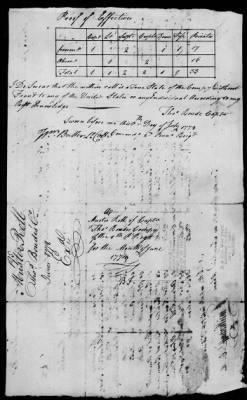 Proof of Effectives
Capt Lt Sergt Corpl Drum Fife Privates
present 1 2 2 1 1 17
Absent 1 16
Total 1 1 2 2 1 1 33
I Do Swear that the within Roll is a True State of the Company without
Fraud to any of the United States or any Individual According to my
Best Knowledge
Thos Bowde Capt
Sworn before me this Day of July 1778
Wm Butler Lt Coll Commdt 4th Penna Regt
Muster Roll
Thos Bowdes Co.
June 1778
Muster Roll of Capt
Thos Bowdes Company
of the 4th P. Regt
for the Month of June
1778